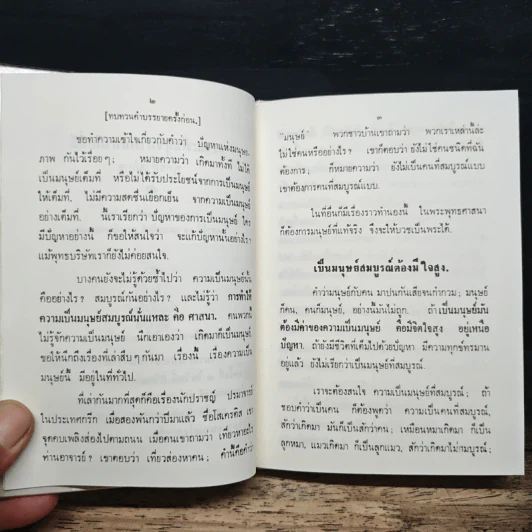 ๒
[ทบทวนคำบรรยายครั้งก่อน,]
ขอทำความเข้าใจเกี่ยวกับคำว่า ปัญหาแห่งมนุษย-
ภาพ กันไว้เรื่อยๆ; หมายความว่า เกิดมาทั้งที ไม่ได้
เป็นมนุษย์เต็มที่ หรือไม่ได้รับประโยชน์จากการเป็นมนุษย์
ให้เต็มที่, ไม่มีความสดชื่นเยือกเย็น จากความเป็นมนุษย์
อย่างเต็มที่. นี้เราเรียกว่า ปัญหาของการเป็นมนุษย์ ใคร
มีปัญหาอย่างนี้ ก็ขอให้สนใจว่า จะแก้ปัญหานั้นอย่างไร?
แม้พุทธบริษัทเราก็ยังไม่ค่อยสนใจ.
บางคนยังจะไม่รู้ด้วยซ้ำไปว่า ความเป็นมนุษย์นั้น
คืออย่างไร? สมบูรณ์กันอย่างไร? และไม่รู้ว่า การทำให้
ความเป็นมนุษย์สมบูรณ์นั่นแหละ คือ ศาสนา. คนพวกนี้
ไม่รู้จักความเป็นมนุษย์ นึกเอาเองว่า เกิดมาก็เป็นมนุษย์
ขอให้นึกถึงเรื่องที่เล่าสืบๆกันมา เรื่องนี้ เรื่องความเป็น
มนุษย์นี้ มีอยู่ในที่ทั่วไป.
ที่เล่ากันมากที่สุดก็คือเรื่องนักปราชญ์ ปรมาจารย์
ในประเทศกรีก เมื่อสองพันกว่าปีมาแล้ว ชื่อโสเครติส เขา
จุดคบเพลิงส่องไปตามถนน เมื่อคนเขาถามว่า เที่ยวหาอะไร
ท่านอาจารย์? เขาตอบว่า เที่ยวส่องหาคน;
๓
"มนุษย์ พวกชาวบ้านเขาถามว่า พวกเราเหล่านี้ล่ะ
ไม่ใช่คนหรืออย่างไร? เขาก็ตอบว่า ยังไม่ใช่คนชนิดที่ฉัน
ต้องการ; ก็หมายความว่า ยังไม่เป็นคนที่สมบูรณ์แบบ
เขาต้องการคนที่สมบูรณ์แบบ.
ในที่อื่นก็มีเรื่องราวทำนองนี้ ในพระพุทธศาสนา
ก็ต้องการมนุษย์ที่แท้จริง จึงจะให้บวชเป็นพระได้.
เป็นมนุษย์สมบูรณ์ต้องมีใจสูง.
คำว่ามนุษย์กับคน มาปนกันเสียจนกำกวม; มนุษย์
ก็คน, คนก็มนุษย์, อย่างนั้นมันไม่ถูก. ถ้าเป็นมนุษย์มัน
ต้องมีค่าของความเป็นมนุษย์ คือมีจิตใจสูง อยู่เหนือ
ปัญหา. ถ้ายังมีชีวิตที่เต็มไปด้วยปัญหา มีความทุกข์ทรมาน
อยู่แล้ว ยังไม่เรียกว่าเป็นมนุษย์ที่สมบูรณ์.
เราจะต้องสนใจ ความเป็นมนุษย์ที่สมบูรณ์; ถ้า
ชอบคำว่าเป็นคน ก็ต้องพูดว่า ความเป็นคนที่สมบูรณ์,
สักว่าเกิดมา มันก็เป็นสักว่าคน; เหมือนหมาเกิดมา ก็เป็น
ลูกหมา, แมวเกิดมา ก็เป็นลูกแมว, สักว่าเกิดมาไม่สมบูรณ์;